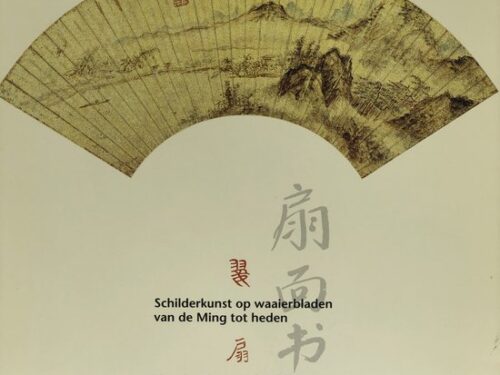 扇面书
Schilderkunst op waaierbladen
van de Ming tot heden
扇